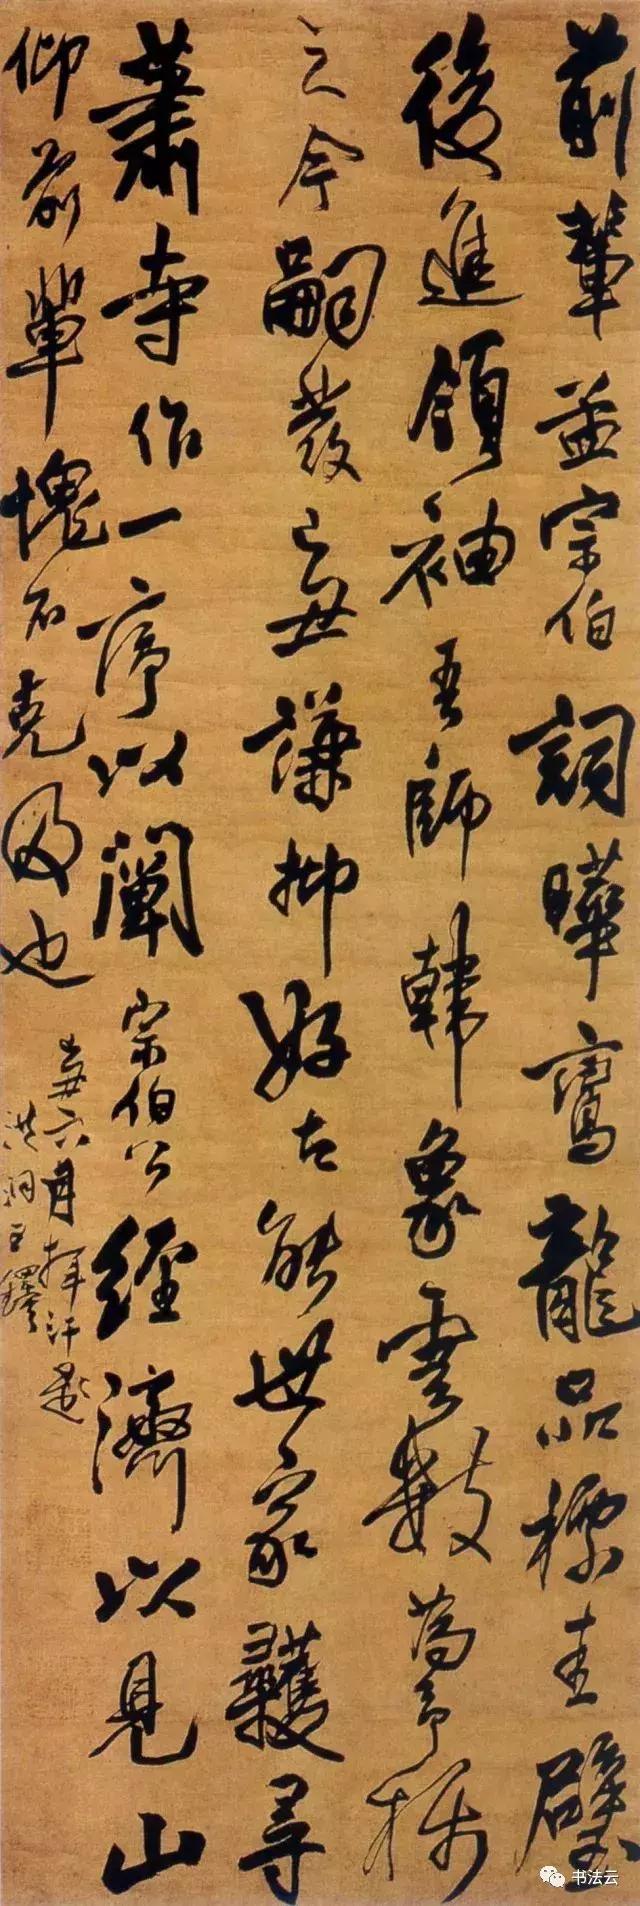 前輩益宗伯詞曄鸞龍品標圭璧
後進領袖吾師韓象雲數為予
之今嗣發已丑謙抑好古能世家囏尋
蕭寺作一序以闡宗伯公經濟以見山
仰前輩愧不克多也
六月揮汗
洪洞王鐸
书法云